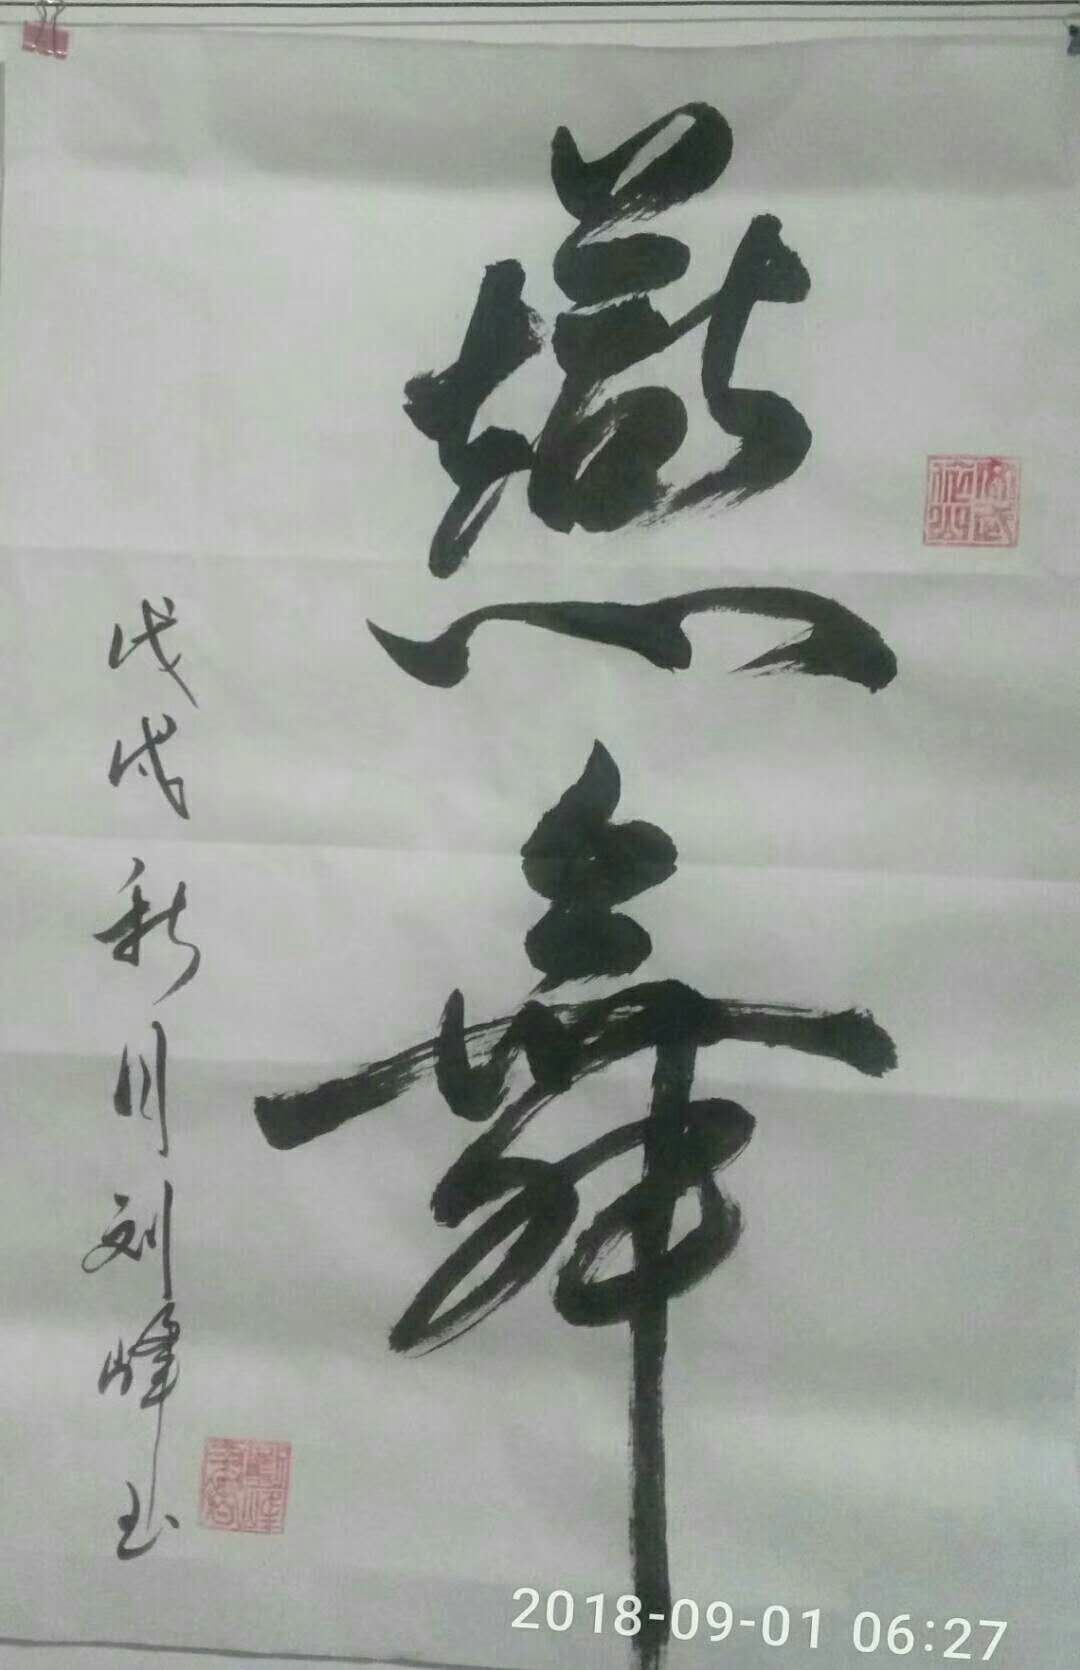 燕舞
戊戌秋月刘峰书
2018-09-01 06:27